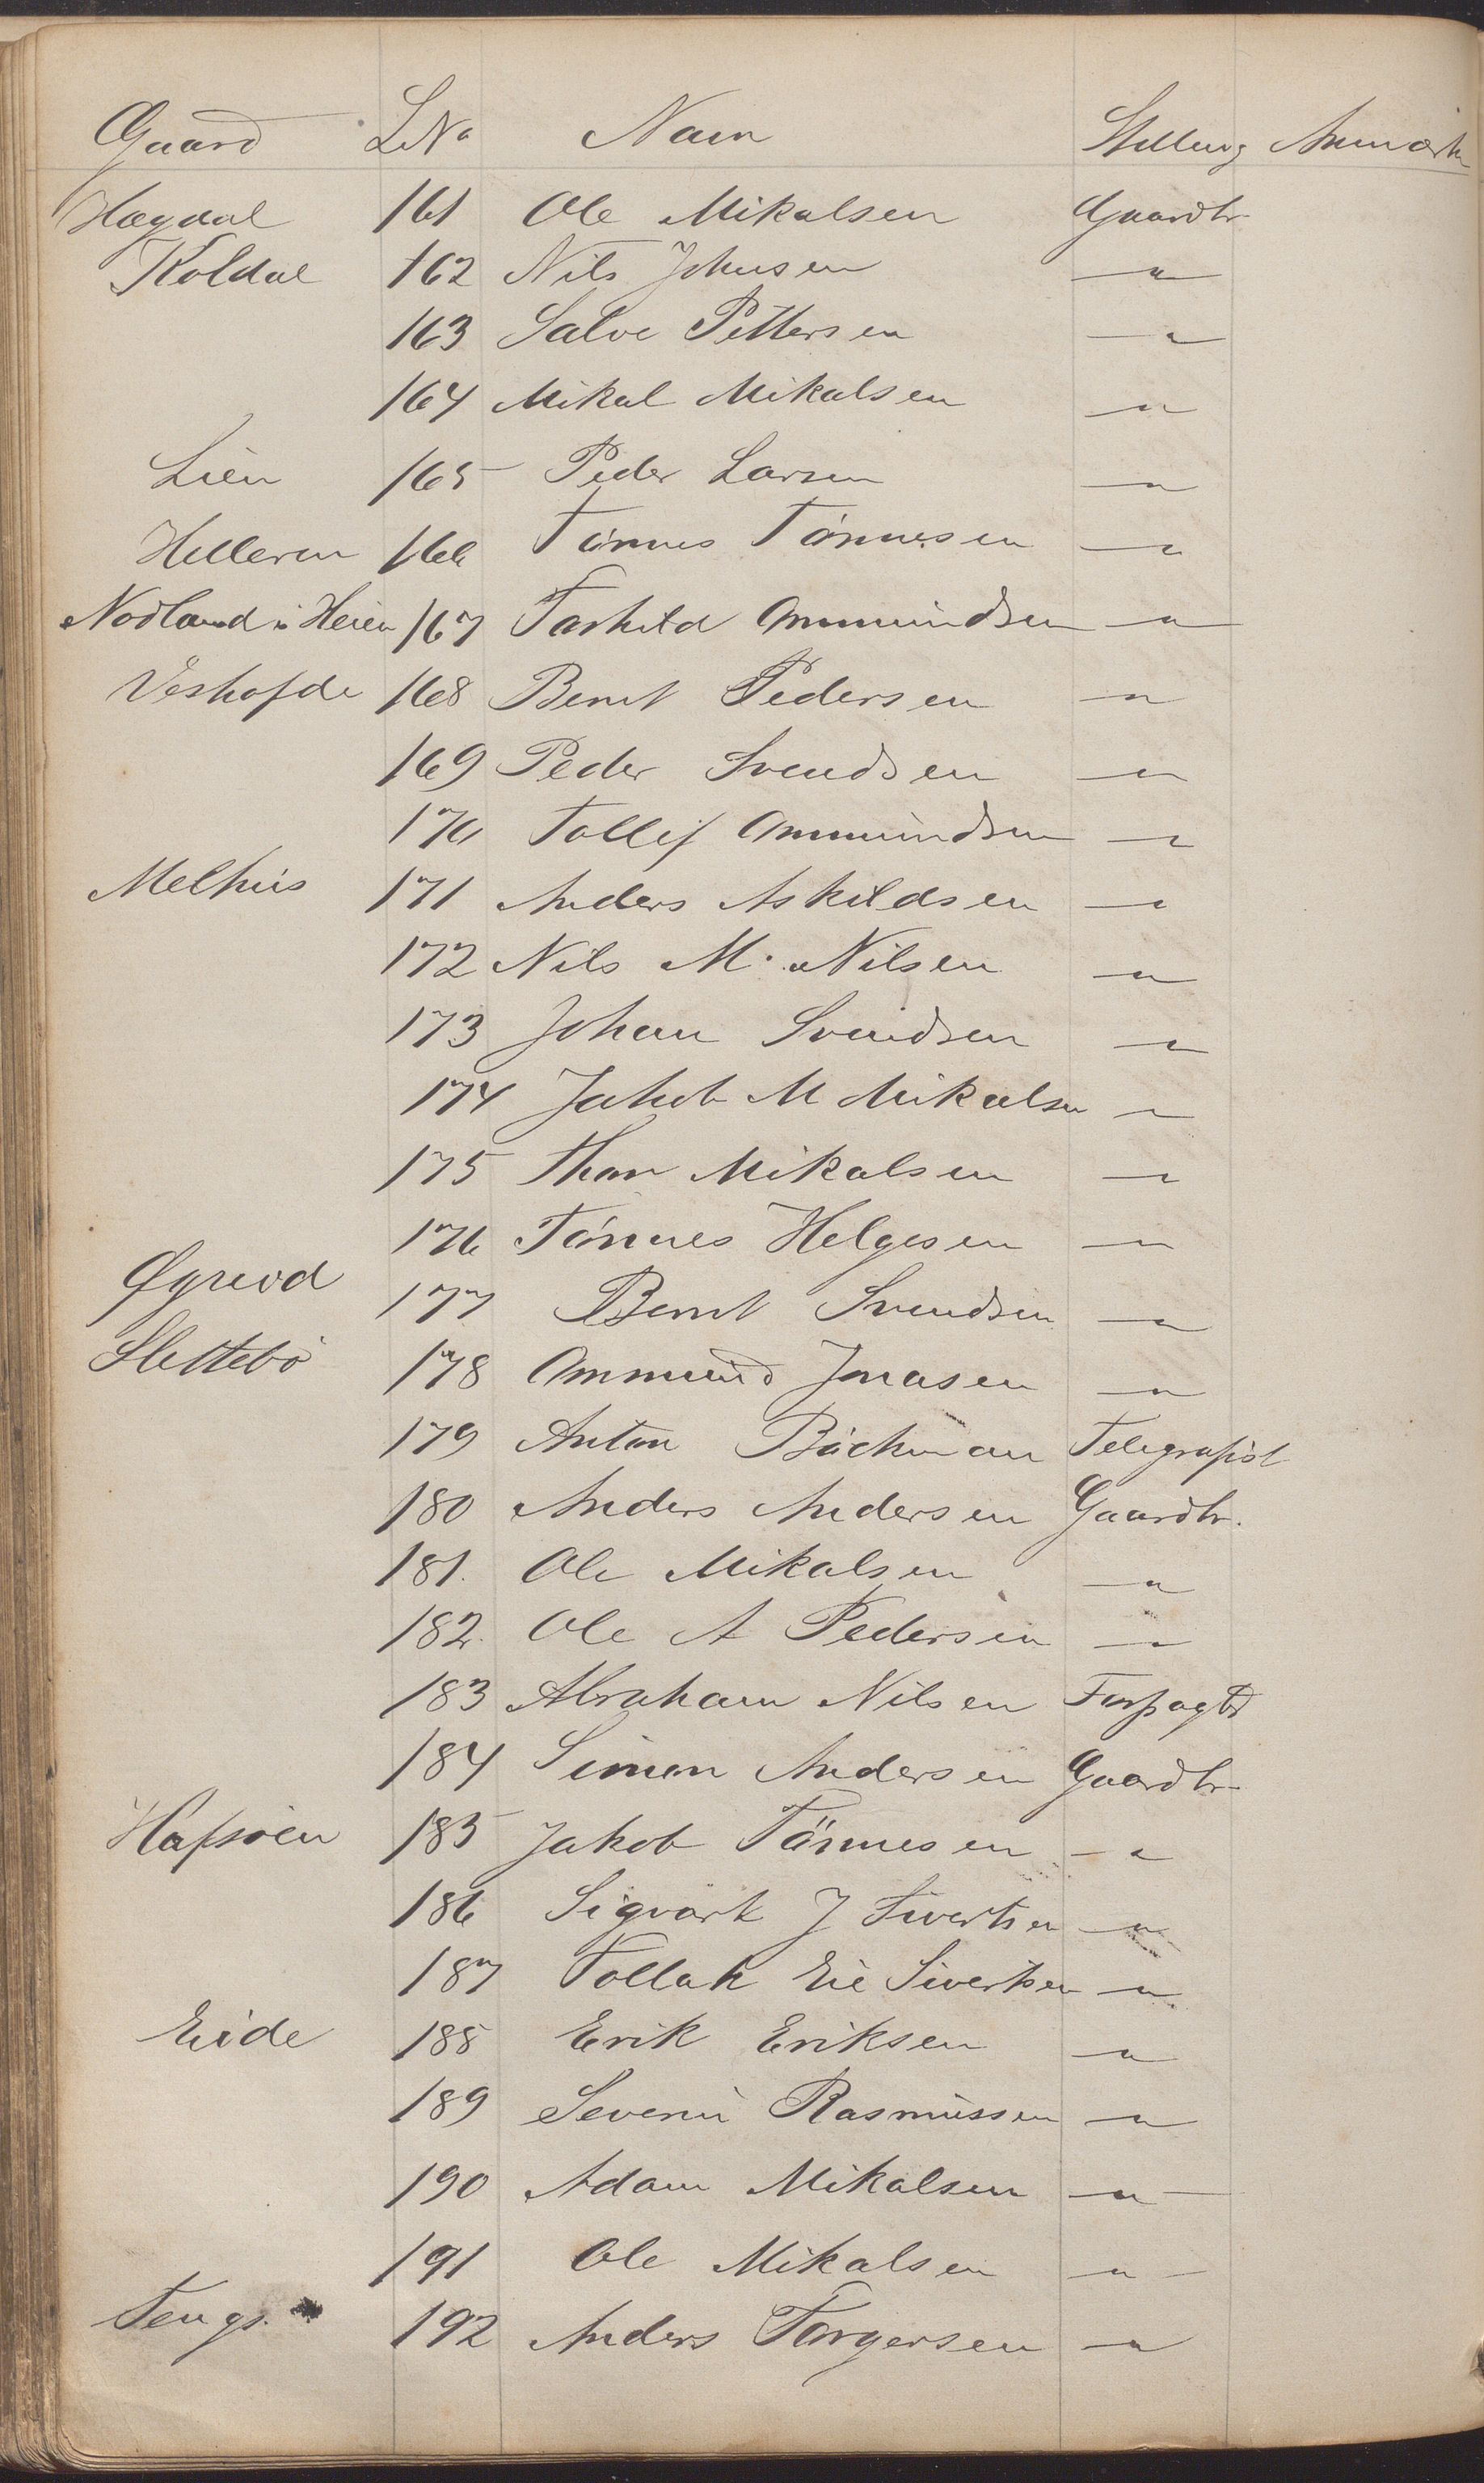 Gaard LNo Navn Stilling Anmærk
Hægdal 161 Ole Mikalsen Gaardbr.
Koldal 162 Nils Johnsen — " —
163 Salve Pettersen — " —
164 Mikal Mikalsen — " —
Lien 165 Peder Larsen — " —
Helleren 166 Tönnes Tönnesen — " —
Nodland i Heien 167 Torkild Ommundsen — " —
Veshofde 168 Bernt Pedersen — " —
169 Peder Svendsen — " —
170 Tollif Ommundsen — " —
Melhus 171 Anders Askildsen — " —
172 Nils M. Nilsen — " —
173 Johan Svendsen — " —
174 Jakob M Mikalsen — " —
175 Thor Mikalsen — " —
176 Tönnes Helgesen — " —
Øgreid 177 Bernt Svendsen — " —
Slettebö 178 Ommund Jonasen — " —
179 Anton Böchman Telegrafist
180 Anders Andersen Gaardbr.
181. Ole Mikalsen — " —
182. Ole A Pedersen — " —
183 Abraham Nilsen Forpagter
184 Simon Andersen Gaardbr.
Hafsöen 185 Jakob Tönnesen — " —
186 Sigvart J Sivertsen — " —
187 Tollak Eie Sivertsen — " —
Eide 188 Erik Eriksen — " —
189 Severin Rasmussen — " —
190 Adam Mikalsen — " —
191 Ole Mikalsen — " —
Tengs. 192 Anders Torgersen — " —